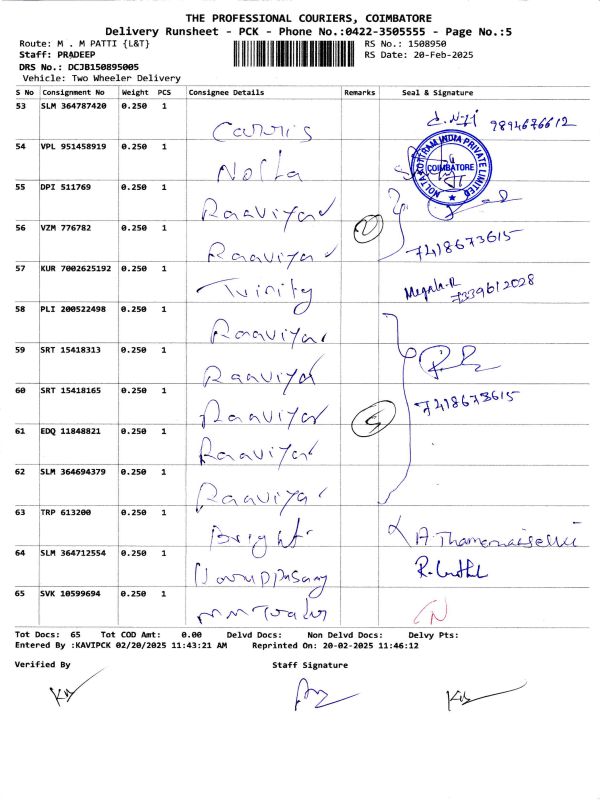 THE PROFESSIONAL COURIERS, COIMBATORE
Delivery Runsheet - PCK - Phone No.:0422-3505555 - Page No.:5
Route: M . M PATTI {L&T} RS No.: 1508950
Staff: PRADEEP RS Date: 20-Feb-2025
DRS No.: DCJB150895005
Vehicle: Two Wheeler Delivery
S No Consignment No Weight PCS Consignee Details Remarks Seal & Signature
53 SLM 364787420 0.250 1 Carris 9894676612
54 VPL 951458919 0.250 1 Nolta
NOLTA KOTRAM INDIA PRIVATE LIMITED
COIMBATORE
55 DPI 511769 0.250 1 Raaviyar
56 VZM 776782 0.250 1 Raaviyar 2 7418673615
57 KUR 7002625192 0.250 1 Trinity Megala.R 7339612028
58 PLI 200522498 0.250 1 Raaviyar
59 SRT 15418313 0.250 1 Raaviyar
60 SRT 15418165 0.250 1 Raaviyar 7418673615
61 EDQ 11848821 0.250 1 Raaviyar
62 SLM 364694379 0.250 1 Raaviyar
63 TRP 613200 0.250 1 Bright
64 SLM 364712554 0.250 1
65 SVK 10599694 0.250 1
Tot Docs: 65 Tot COD Amt: 0.00 Delvd Docs: Non Delvd Docs: Delvy Pts:
Entered By :KAVIPCK 02/20/2025 11:43:21 AM Reprinted On: 20-02-2025 11:46:12
Verified By Staff Signature